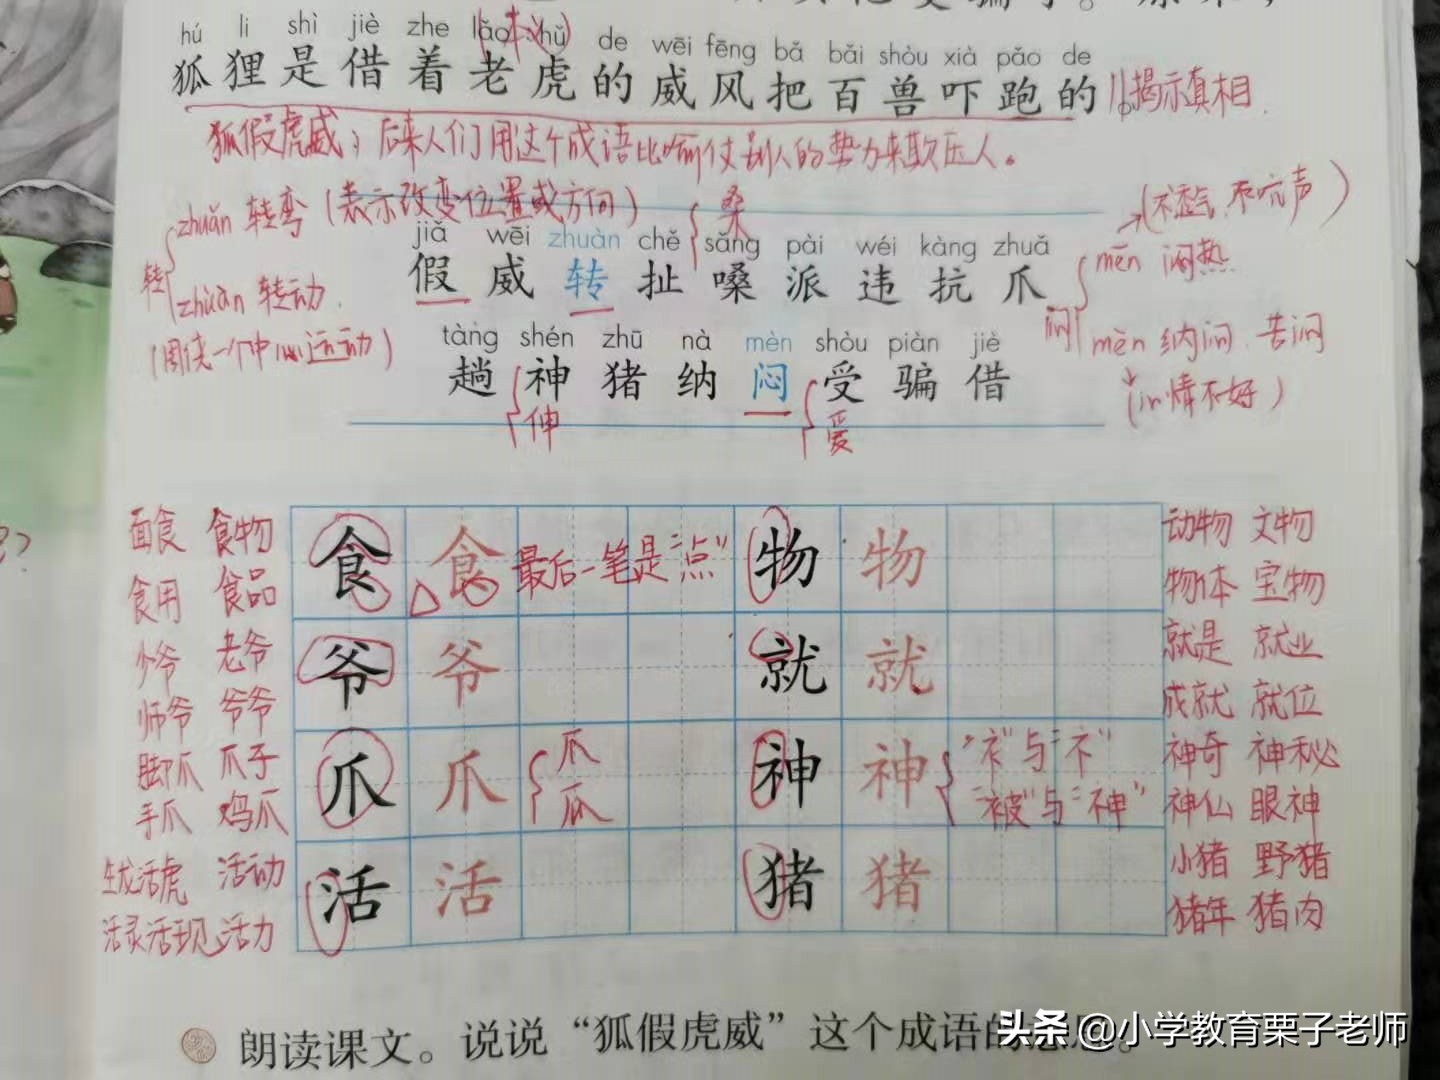 hú li shì jiè zhe lǎo hǔ de wēi fēng bǎ bǎi shòu xià pǎo de
狐狸是借着老虎的威风把百兽吓跑的。揭示真相
狐假虎威：后来人们用这个成语比喻仗别人的势力来欺压人。
zhuǎn 转弯（表示改变位置或方向）
桑
（不透气，不吭声）
jiǎ wēi zhuàn chě sǎng pài wéi kàng zhuǎ
假威转扯嗓派违抗爪
转
zhuàn 转动
（围绕一个中心运动）
闷
mēn 闷热
mèn 纳闷 苦闷
（心情不好）
tàng shén zhū nà mèn shòu piàn jiè
趟神猪纳闷受骗借
伸
爱
面食 食物
食用 食品
食 食 最后一笔是“点” 物 物
动物 文物
物体 宝物
少爷 老爷
师爷 爷爷
爷 爷 就 就
就是 就业
成就 就位
脚爪 爪子
手爪 鸡爪
爪 爪 爪 瓜 神 神 “衤”与“礻”
“被”与“神”
神奇 神秘
神仙 眼神
生龙活虎 活动
活灵活现 活力
活 活 猪 猪
小猪 野猪
猪年 猪肉
朗读课文。说说“狐假虎威”这个成语的意思。
头条@小学教育栗子老师